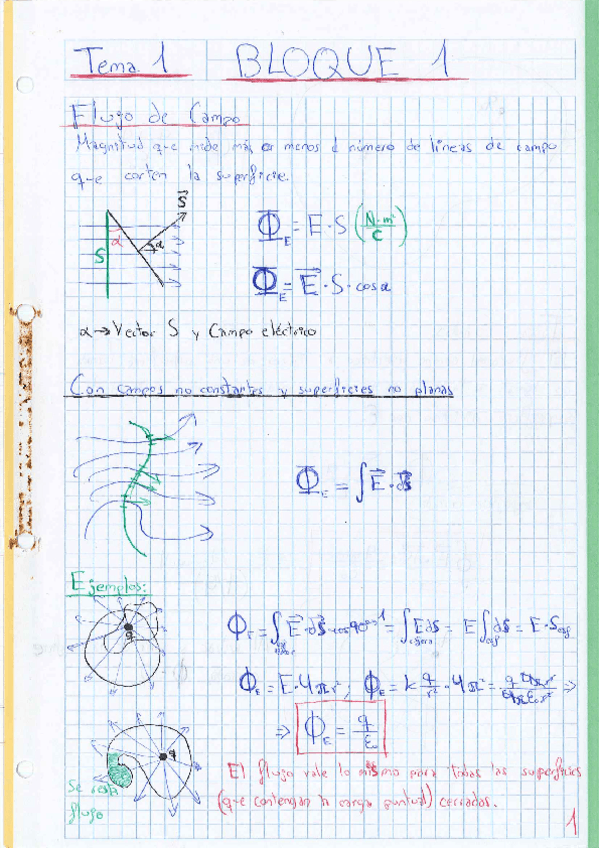 Tema 1 BLOQUE 1
Flujo de Campo
Magnitud que mide más or menos el número de líneas de campo
que corten la superficie.
S⃗
α
S
α
Φ_E = E · S (N·m²/C)
Φ_E = E⃗ · S · cos α
α → Vector S y Campo eléctrico
Con campos no constantes y superficies no planas
Φ_E = ∫ E⃗ · dS⃗
Ejemplos:
q
= ∫ E dS = E ∫ dS = E · S
Φ_E = E · 4πr² ; Φ_E = k q/r² · 4πr² = ⇒
⇒ Φ_E = q/ε₀
q
Se resta
flujo
El flujo vale lo mismo para todas las superficies
(que contengan la carga puntual) cerradas.
1